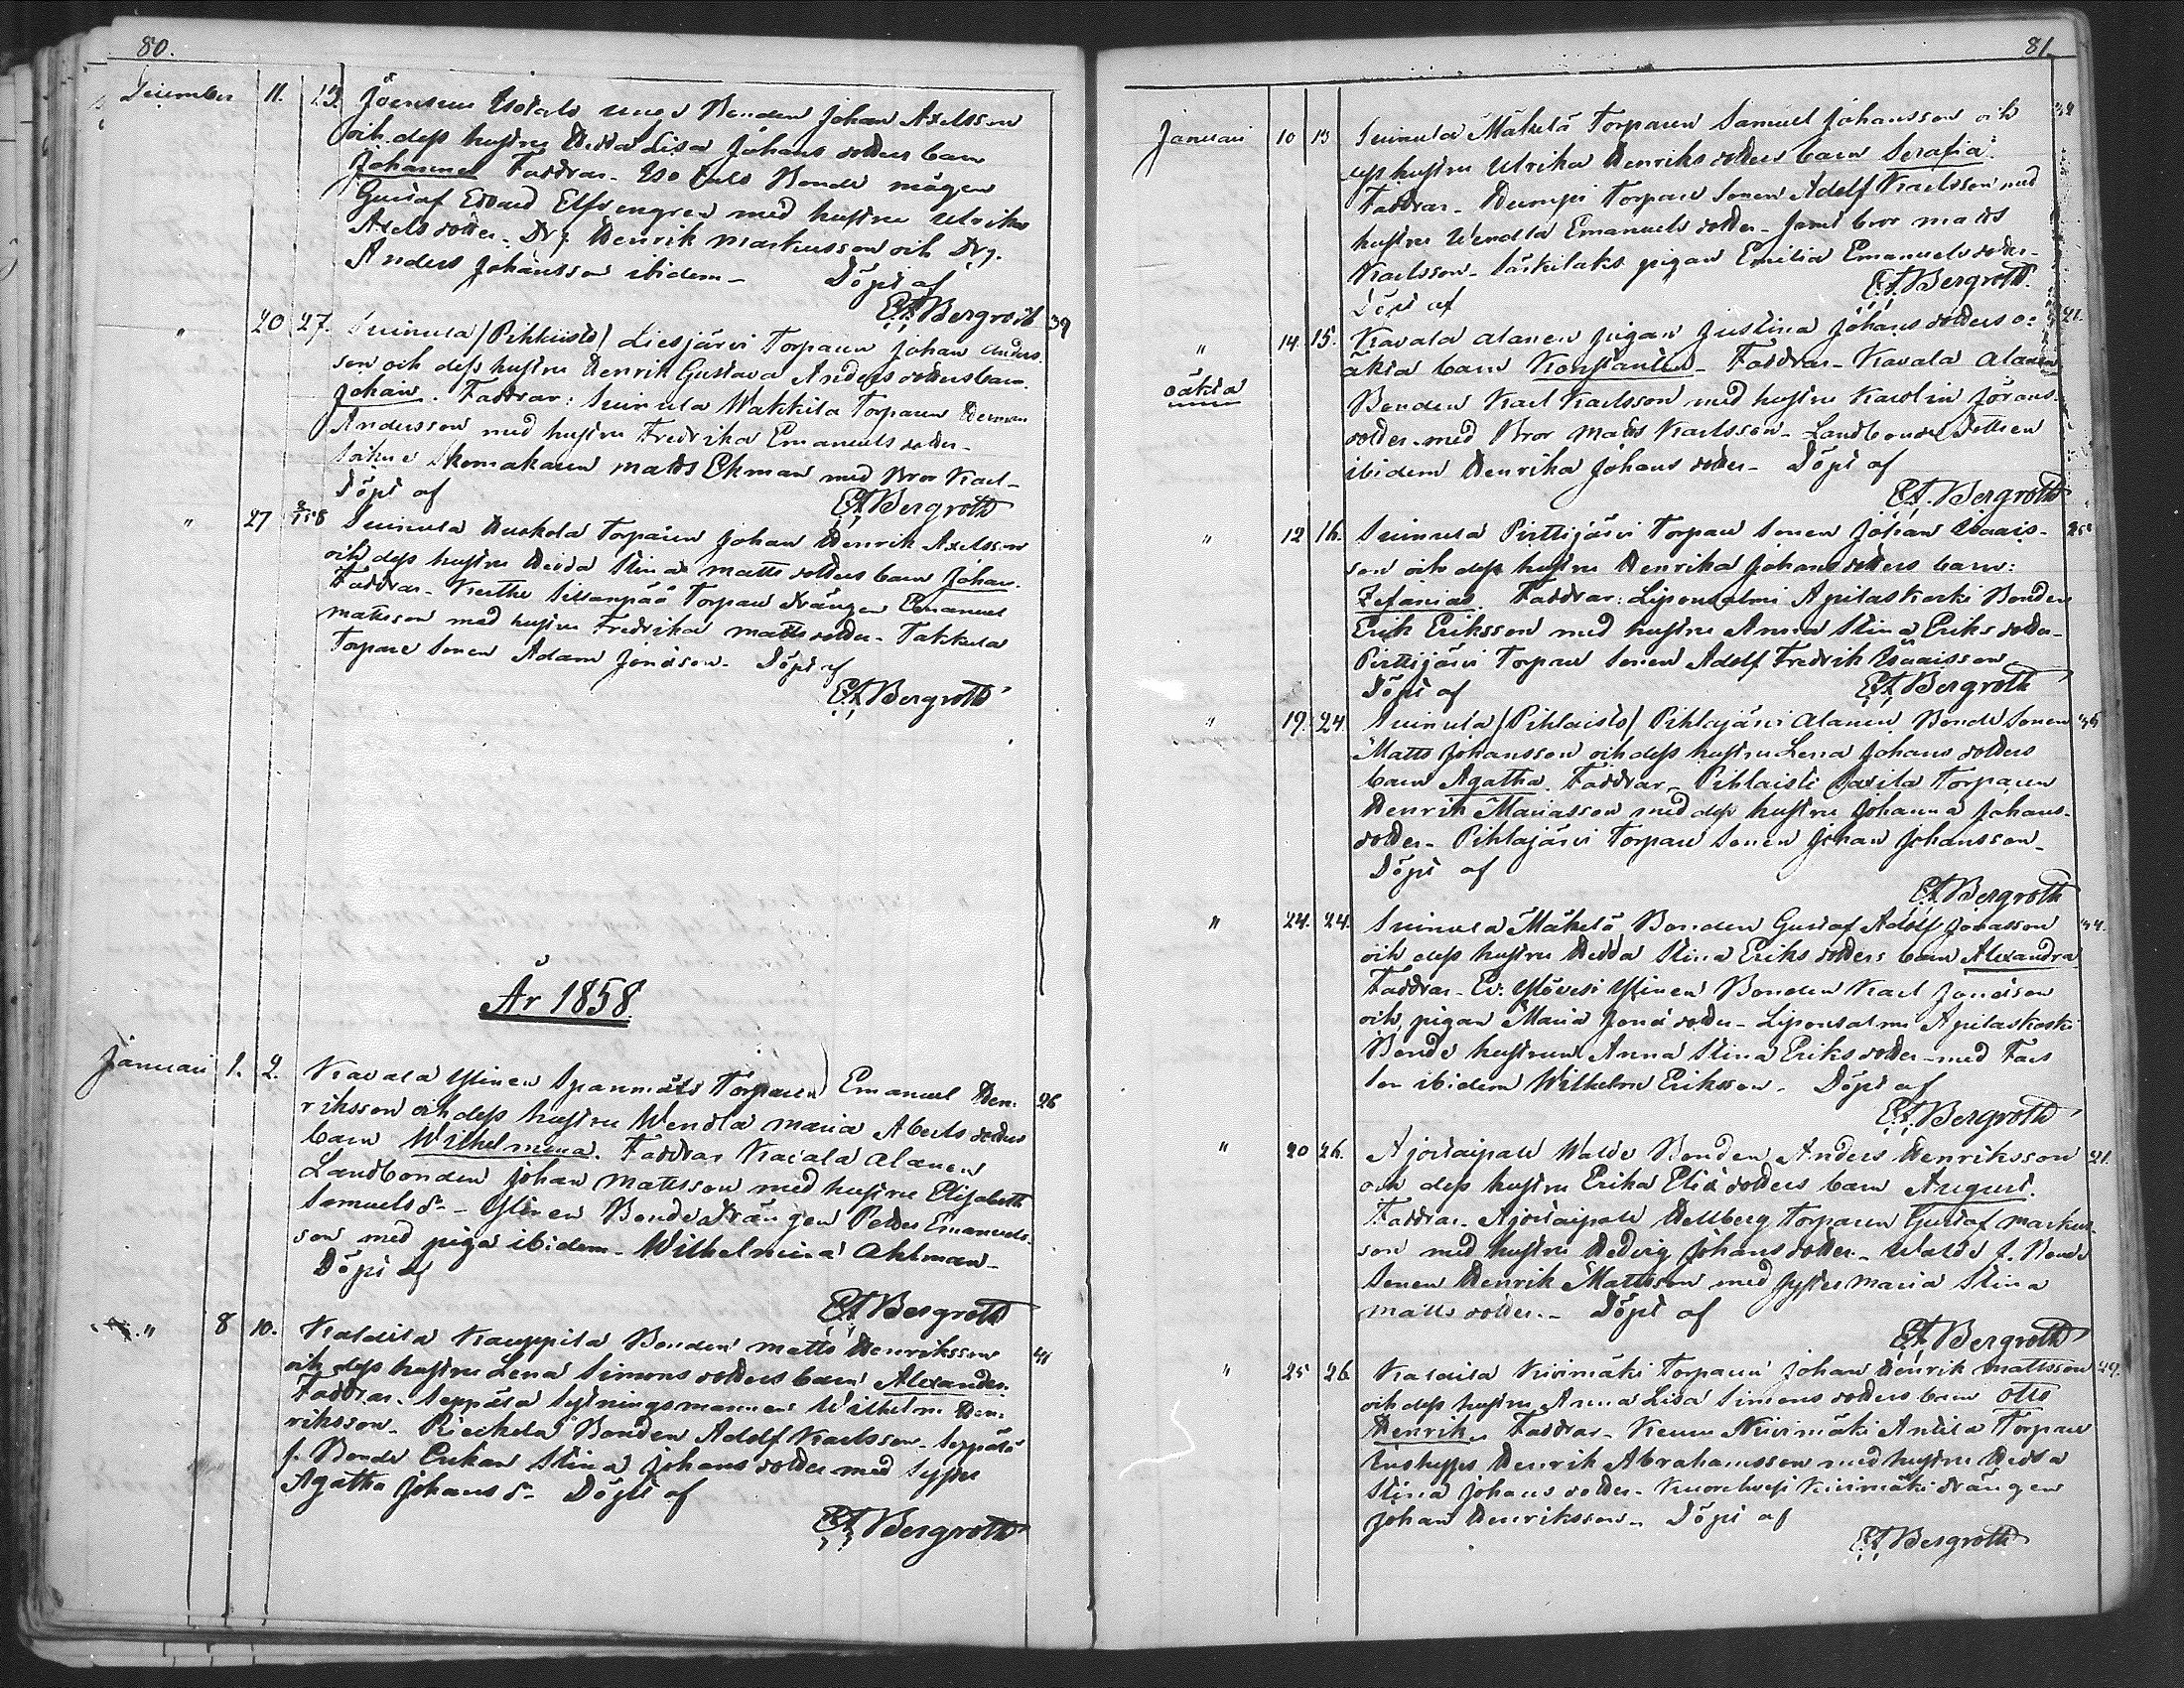 80.
December 11. 23. Joensuu Isotalo unga Bonden Johan Axelsson
och dess hustru Hedda Lisa Johans dotters barn
Johannes Faddrar. Iso talo Bonde mågen
Gustaf Edvard Elfvengren med hustru Ulrika
Axels dotter. Drg. Henrik Markusson och Drg.
Anders Johansson ibidem _ Döpt af
Bergroth
" 20 27. Suinula /Pihlaisto/ Liesjärvi Torparen Johan Anders 39
son och dess hustru Henrik Gustava Anders dotters barn
Johan. Faddrar: Suinula Wakkila Torparen Herman
Andersson med hustru Fredrika Emanuels dotter _
Skomakaren Matts Ekman med Bror Karl _
Döpt af
Bergroth
" 27 Suinula Torparen Johan Henrik Axelsson
och dess hustru Hedda Stina Matts dotters barn Johan.
Faddrar _ Sillanpää Torpare drängen Emanuel
Mattsson med hustru Fredrika Matts dotter _ Takkula
Torpare Sonen Adam Jonasson _ Döpt af
Bergroth
År 1858
Januari 1. 2. Kavala Ylinen Torparen Emanuel Hen- 26
riksson och dess hustru Wendla Maria Aberts dotters
barn Wilhelmina. Faddrar Kavala Alanen
Landbonden Johan Mattsson med hustru Elisabeth
Samuels dr _ Ylinen Bonde drängen Petter Emanuels-
son med piga ibidem _ Wilhelmina Ahlman _
Döpt af
Bergroth
" 8 10. Kaldila Kauppila Bonden Matts Henriksson 41
och dess hustru Lena Simons dotters barn Alexander.
Faddrar. Seppälä Sytningsmannen Wilhelm Hen-
riksson _ Bonden Adolf Karlsson _ Seppälä
f. Bonde Enkan Stina Johans dotter med Syster
Agatha Johans dr _ Döpt af
Bergroth
81
Januari 10 13 Suinula Mäkelä Torparen Samuel Johansson och
dess hustru Ulrika Henriks dotters barn Serafia.
Faddrar _ Torpare Sonen Adolf Karlsson med
hustru Wendla Emanuels dotter _ Jemt bror Matts
Karlsson _ Säskilaks pigan Emilia Emanuels dotter _
Döpt af
Bergroth.
" 14. 15. Kavala Alanen pigan Justina Johans dotters o- 21.
oäkta
äkta barn Konstantin _ Faddrar _ Kavala Alanen
Bonden Karl Karlsson med hustru Karolin Jörans
dotter _ med Bror Matts Karlsson _ Landbonde Dottren
ibidem Henrika Johans dotter _ Döpt af
Bergroth
" 12 16. Suinula Pirttijärvi Torpare Sonen Johan Isaais-
son och dess hustru Henrika Johans dotters barn:
Zefanias. Faddrar: Liponsalmi Apilaskoski Bonden
Erik Eriksson med hustru Anna Stina Eriks dotter _
Pirttijärvi Torpare Sonen Adolf Fredrik Isaaisson
Döpt af
Bergroth
" 19. 24. Suinula /Pihlaisto/ Pihlajärvi Alanen Bonde Sonen
Matts Johansson och dess hustru Lena Johans dotters
barn Agatha. Faddrar _ Pihlaisto Torparen
Henrik Mariasson med dess hustru Johanna Johans-
dotter _ Pihlajärvi Torpare Sonen Johan Johansson _
Döpt af
Bergroth
" 24. 24. Suinula Mäkelä Bonden Gustaf Adolf Jonasson
och dess hustru Hedda Stina Eriks dotters barn Alexandra
Faddrar _ Ylinen Bonden Karl Jonasson
och pigan Maria Jona dotter _ Liponsalmi Apilaskoski
Bonde hustrun Anna Stina Eriks dotter _ med Fars
Son ibidem Wilhelm Eriksson _ Döpt af
Bergroth
" 20 26. Ajostaipale Walde Bonden Anders Henriksson 21.
och dess hustru Erika Elia dotters barn August.
Faddrar _ Ajostaipale Hellberg Torparen Gustaf Markus-
son med hustru Hedvig Johans dotter _ Walde f. Bonde
Sonen Henrik Mattsson med Syster Maria Stina
Matts dotter _ Döpt af
Bergroth
" 25 26 Kaldila Kivimäki Torparen Johan Henrik Mattsson 49.
och dess hustru Anna Lisa Simons dotters barn Otto
Henrik. Faddrar _ Keuru Kivimäki Anttila Torpare
Inhyses Henrik Abrahamsson med hustru Hedda
Stina Johans dotter _ Kuorehvesi Kivimäki drängen
Johan Henriksson _ Döpt af
Bergroth